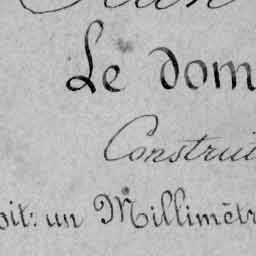 Le dom
Construi
oit: un Millimètr